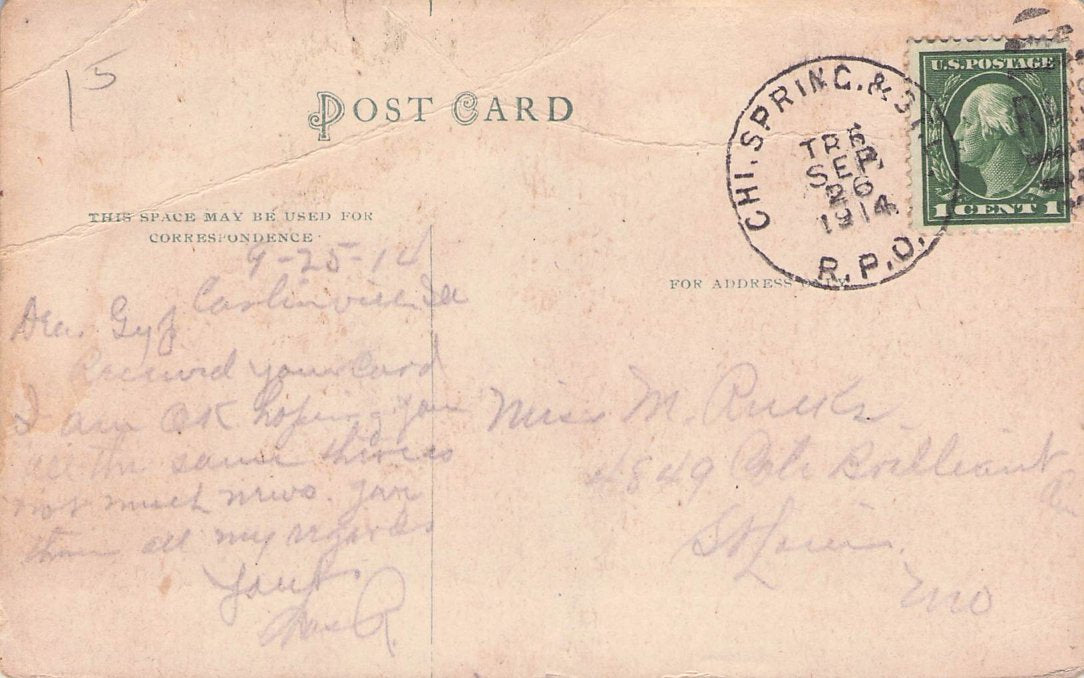 15
POST CARD
THIS SPACE MAY BE USED FOR
CORRESPONDENCE
FOR ADDRESS
CHI. SPRING. & ST
TR 6
SEP
26
1914
R.P.O.
U.S. POSTAGE
1 CENT 1
9-25-14
Carlinville Ill
Dear
Received your Card
I am OK hoping you
all the same there is
not much news. give
them all my regards
Miss M.
4849 Brilliant
St Louis
Mo